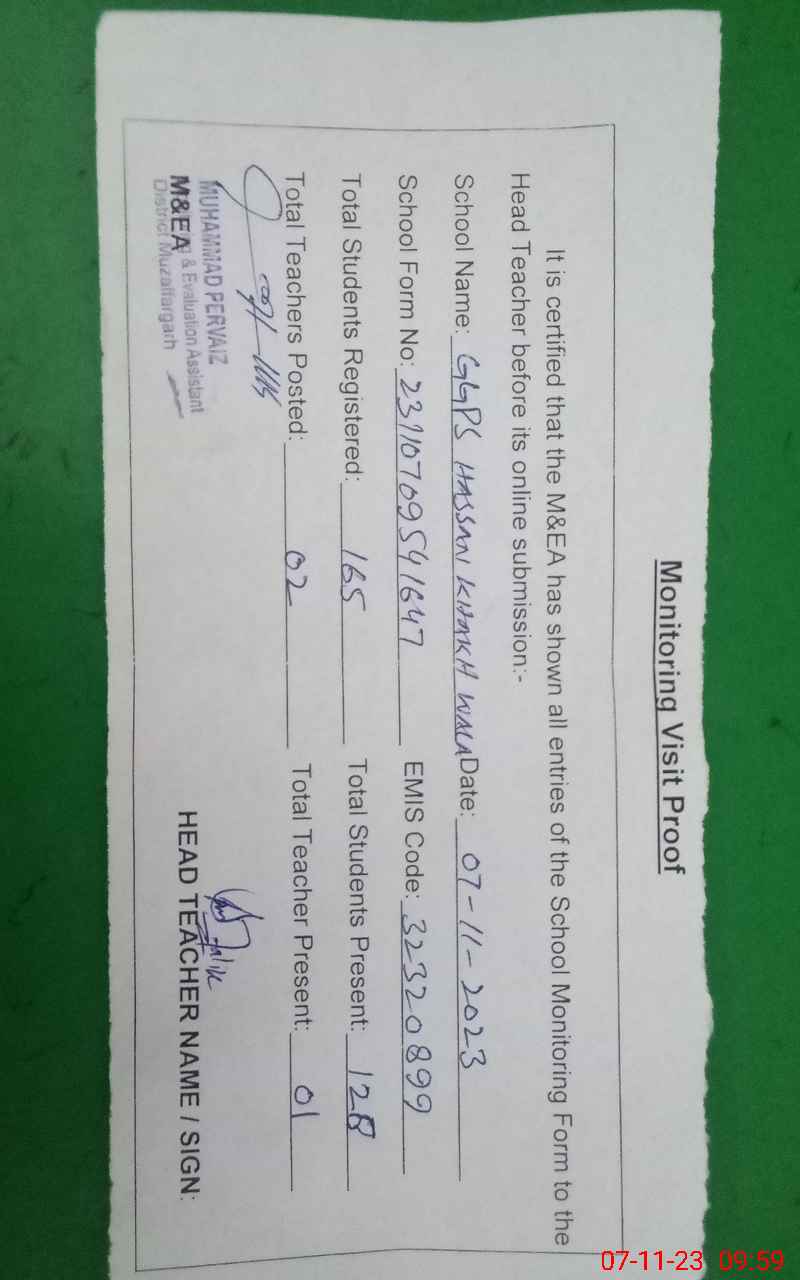 Monitoring Visit Proof
It is certified that the M&EA has shown all entries of the School Monitoring Form to the
Head Teacher before its online submission:-
School Name: GGPS HASSAN KHAKH WALA Date: 07-11-2023
School Form No: 23110709541647 EMIS Code: 32320899
Total Students Registered: 165 Total Students Present: 128
Total Teachers Posted: 02 Total Teacher Present: 01
MUHAMMAD PERVAIZ
& Evaluation Assistant
M&EA
District Muzaffargarh
HEAD TEACHER NAME / SIGN:
07-11-23 09:59